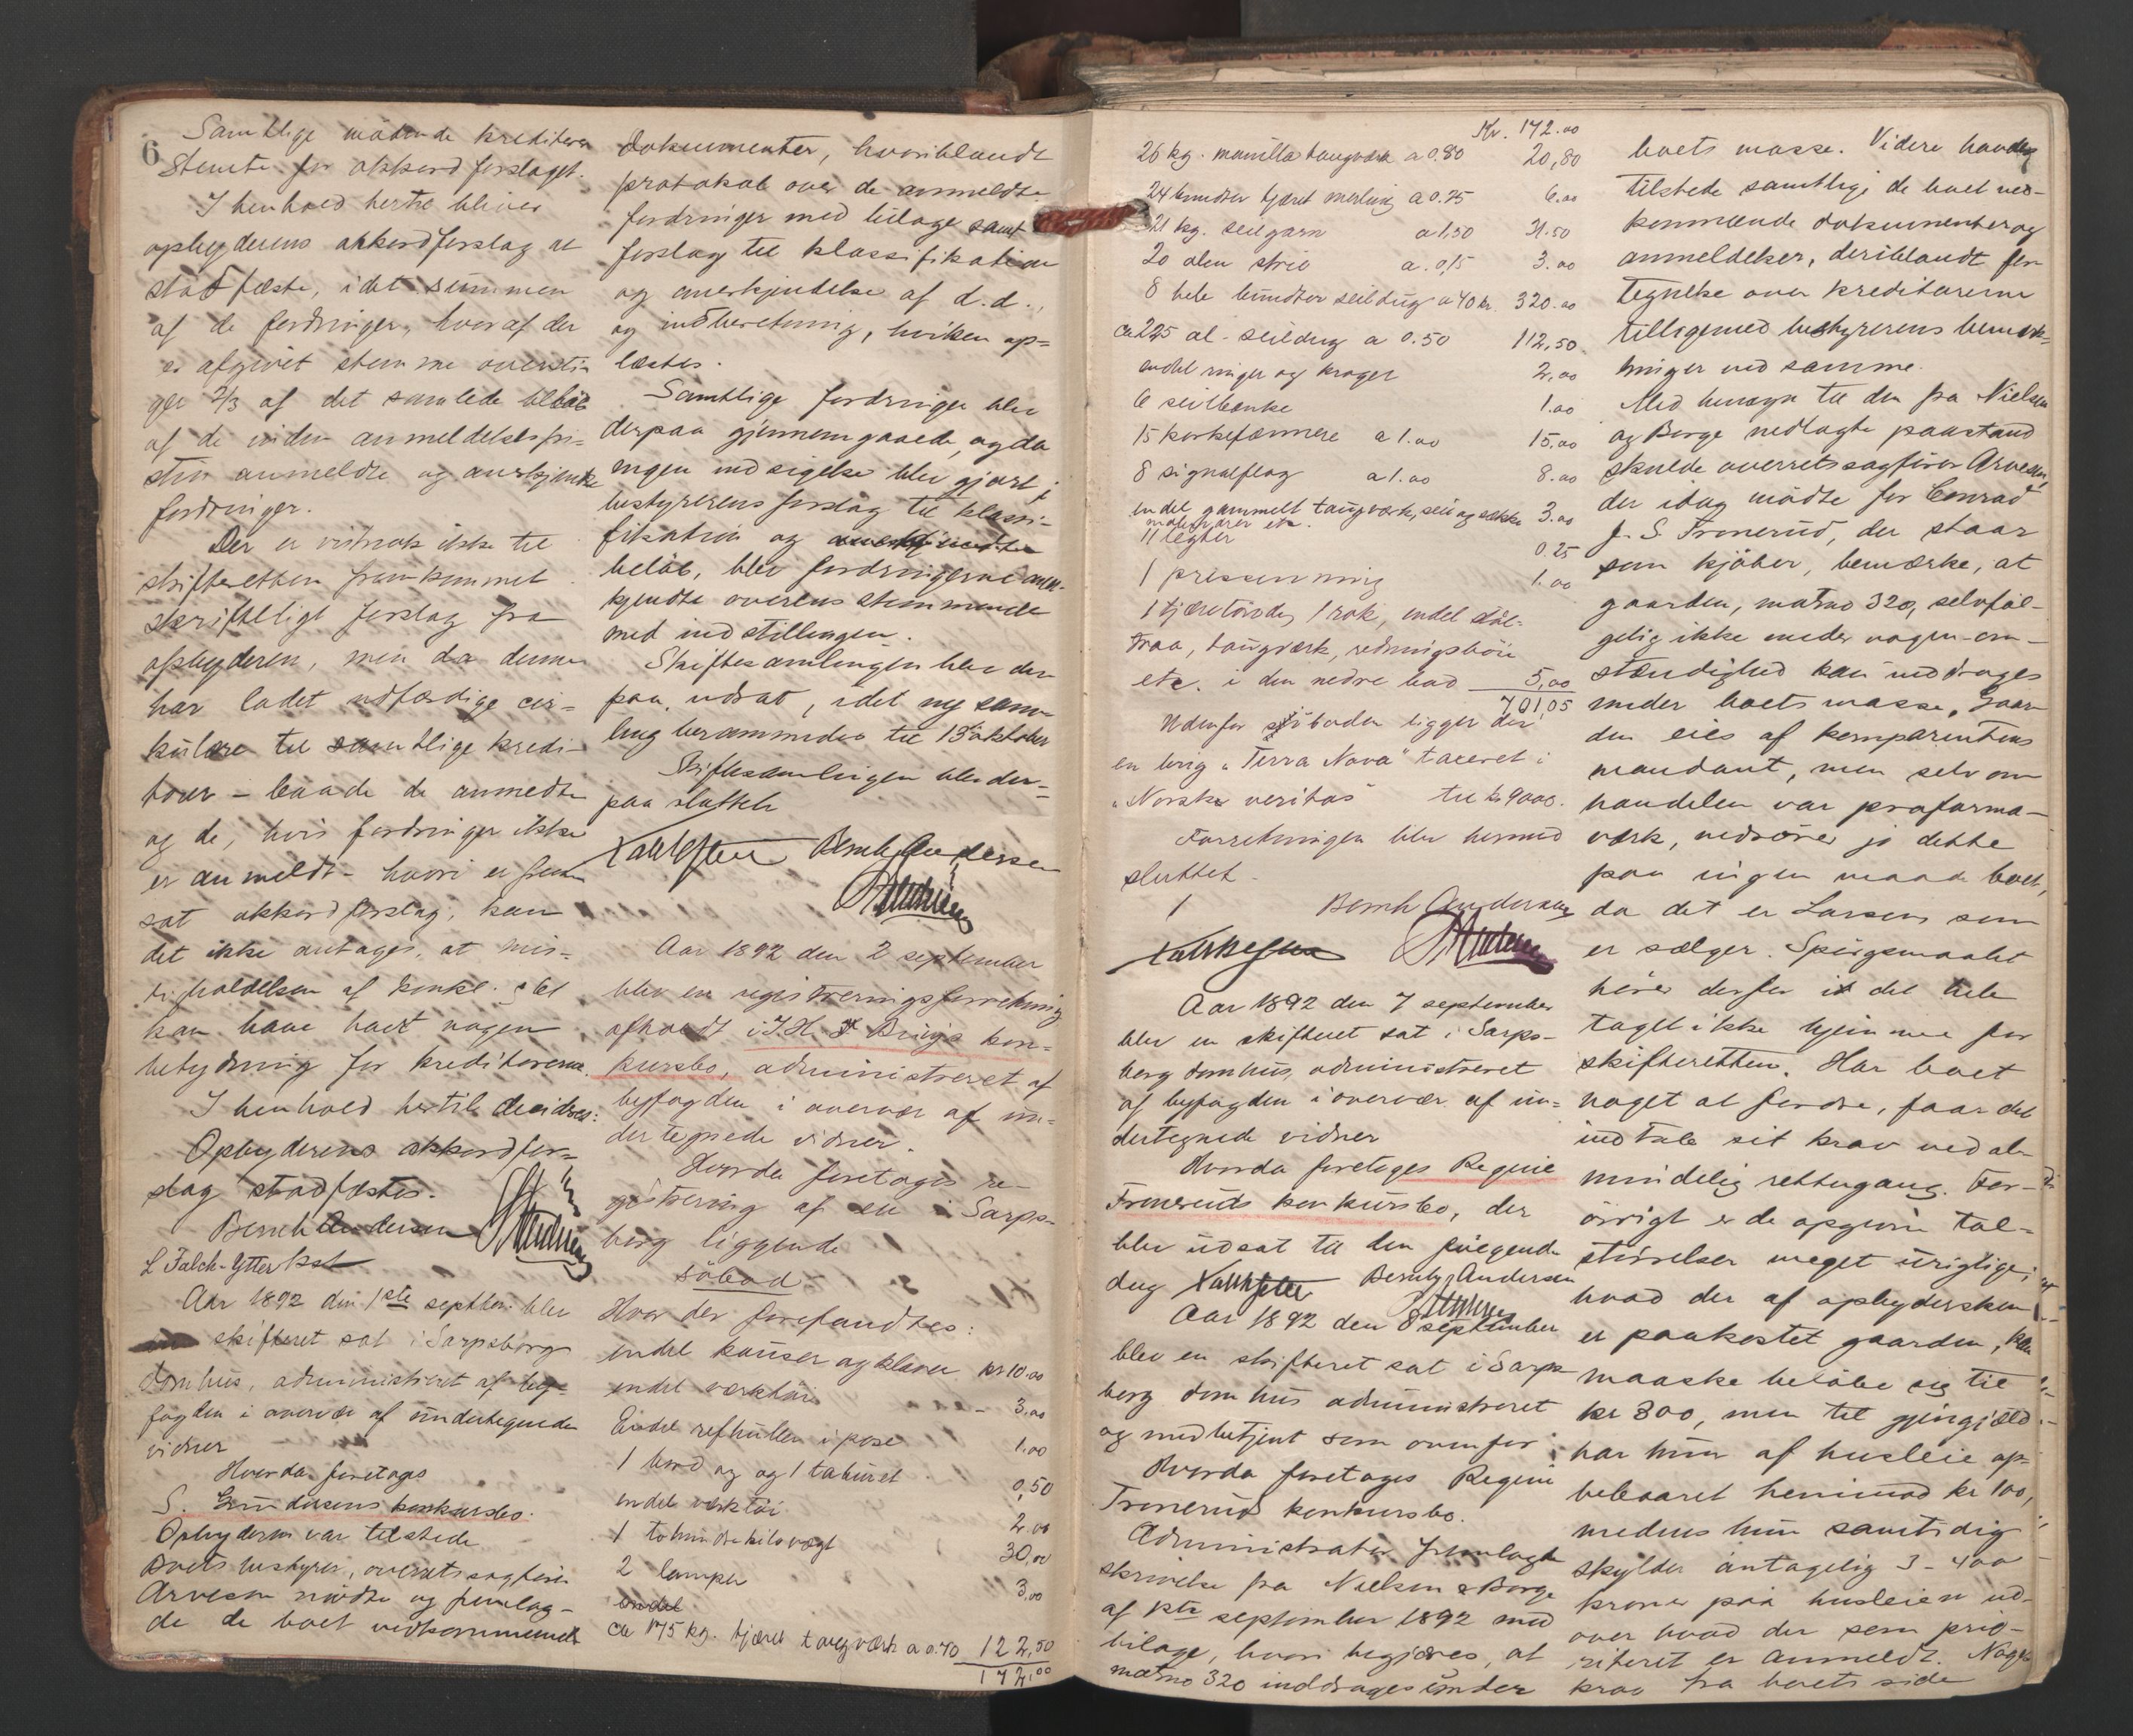 6
Samtlige mödende kreditorer
stemte for akkordforslaget.
I henhold hertil bliver
opbyderens akkordforslag at
stadfæste, idet summen
af de fordringer, hvoraf der
er afgivet stemme oversti-
ger 2/3 af det samlede belöb
af de inden anmeldelsesfri-
sten anmeldte og anerkjendte
fordringer.
Der er vistnok ikke til
skifteretten fremkommet
skriftligt forslag fra
opbyderen, men da denne
har ladet udfærdige cir-
kulære til samtlige kredi-
torer - baade de anmeldte
og de, hvis fordringer ikke
er anmeldt - hvori er frem
sat akkordforslag, kan
det ikke antages, at mis-
ligholdelsen af konkl. §
kan have havt nogen
betydning for kreditorerne.
I henhold hertil decideres:
Opbyderens akkordfor-
slag stadfæstes.
Bernh Andersen
L Falch-Ytter kst
Aar 1892 den 1ste septbr. blev
en skifteret sat i Sarpsborg
domhus, administreret af by-
fogden i overvær af undertegnede
vidner
Hvorda foretoges
S. Gundersens konkursbo.
Opbyderen var tilstede
Boets bestyrer, overretssagfører
Arvesen mödte og fremlag-
de de boet vedkommende
dokumenter, hvoriblandt
protokol over de anmeldte
fordringer med bilage samt
forslag til klassifikation
og anerkjendelse af d.d.,
og indberetning, hvilken op=
læstes.
Samtlige fordringer blev
derpaa gjennemgaaede, og da
ingen indsigelse blev gjort i
bestyrerens forslag til klassi-
fikation og anerkjendte
belöb, blev fordringerne aner-
kjendte overensstemmende
med indstillingen.
Skiftesamlingen blev der
paa udsat, idet ny sam-
ling berammedes til 13de oktober
Skiftesamlingen blev der-
paa sluttet
Bernh Andersen
Aar 1892 den 2 september
blev en registreringsforretning
afholdt i J. H. Brügs kon-
kursbo, administreret af
byfogden i overvær af un-
dertegnede vidner.
Hvorda foretoges re-
gistrering af en i Sarps-
borg liggende
söbod
Hvor der forefandtes:
endel kauser og klaver kr 10.00
endel værktöi - 3,00
Endel refhuller i pose 1.00
1 bord og og 1 taburet 0,50
endel værktöi 2.00
1 tohundrekilosvægt 30,00
2 lamper 3,00
endel
ca 175 kg. tjæret taugværk a 0.70 122,50
172,00
Kr. 172.00
26 kg. manilla taugværk a 0.80 20,80
24 bundter tjæret merling a 0.25 6.00
21 kg. seilgarn a 1,50 31.50
20 alen strie a. 0,15 3.00
8 hele bundter seildug a 40 kr. 320.00
ca 225 al. seildug a 0.50 112,50.
endel ringer og kroger 2,00
6 seilbænke 1.00
15 korkefændere a 1.00 15,00
8 signalflag a 1.00 8.00
endel gammelt taugværk, seil og sække 3.00
malervarer etc.
11 lægter 0.25
1 pressenning 1.00
1 tjæretönde, 1 rok, endel stål-
traa, taugværk, redningsböie
etc. i den nedre bod 5,00
701,05
Udenfor söboden ligger der
en brig "Terra Nova" taxeret i
"Norske veritas" til kr 9000.
Forretningen blev hermed
sluttet.
Bernh Andersen
Aar 1892 den 7 september
blev en skifteret sat i Sarps-
borg domhus, administreret
af byfogden i overvær af un=
dertegnede vidner
Hvorda foretoges Regine
Troneruds konkursbo, der
blev udsat til den fölgende
dag Bernh Andersen
Aar 1892 den 8 september
blev en skifteret sat i Sarps
borg domhus administreret
og medbetjent som ovenfor
Hvorda foretoges Regine
Tronerud konkursbo.
Administrator fremlagde
skrivelse fra Nielsen & Borge
af 1ste september 1892 med
bilage, hvori begjæres, at
matrno 320 inddrages under
boets masse. Videre havdes
tilstede samtlige de boet ved-
kommende dokumenter og
anmeldelser, deriblandt for
tegnelse over kreditorerne
tilligemed bestyrerens bemærk-
ninger ved samme.
Med hensyn til den fra Nielsen
og Borge nedlagte paastand
skulde overretssagförer Arvesen,
der idag mödte for Conrad
J. S. Tronerud, der staar
som kjöber, bemærke, at
gaarden, matrno 320, selvföl-
gelig ikke under nogen om-
stændighed kan inddrages
under boets masse. Gaar-
den eies af komparentens
mandant, men selv om
handelen var proforma-
værk, vedrører jo dette
paa ingen maade boet,
da det er Larsen som
er sælger. Spörgsmaalet
hörer derfor i det hele
taget ikke hjemme for
skifteretten. Har boet
noget at fordre, faar det
indtale sit krav ved al-
mindelig rettergang. For-
övrigt er de opgivne tal-
störrelser meget urigtige;
hvad der af opbydersken
er paakostet gaarden, kan
maaske belöbe sig til
kr 300, men til gjengjæld
har hun af husleie op-
bebaaret henimod kr 100,
medens hun samtidig
skylder antagelig 3-400
kroner paa husleien ud-
over hvad der som prio-
riteret er anmeldt. Noget
krav fra boets side